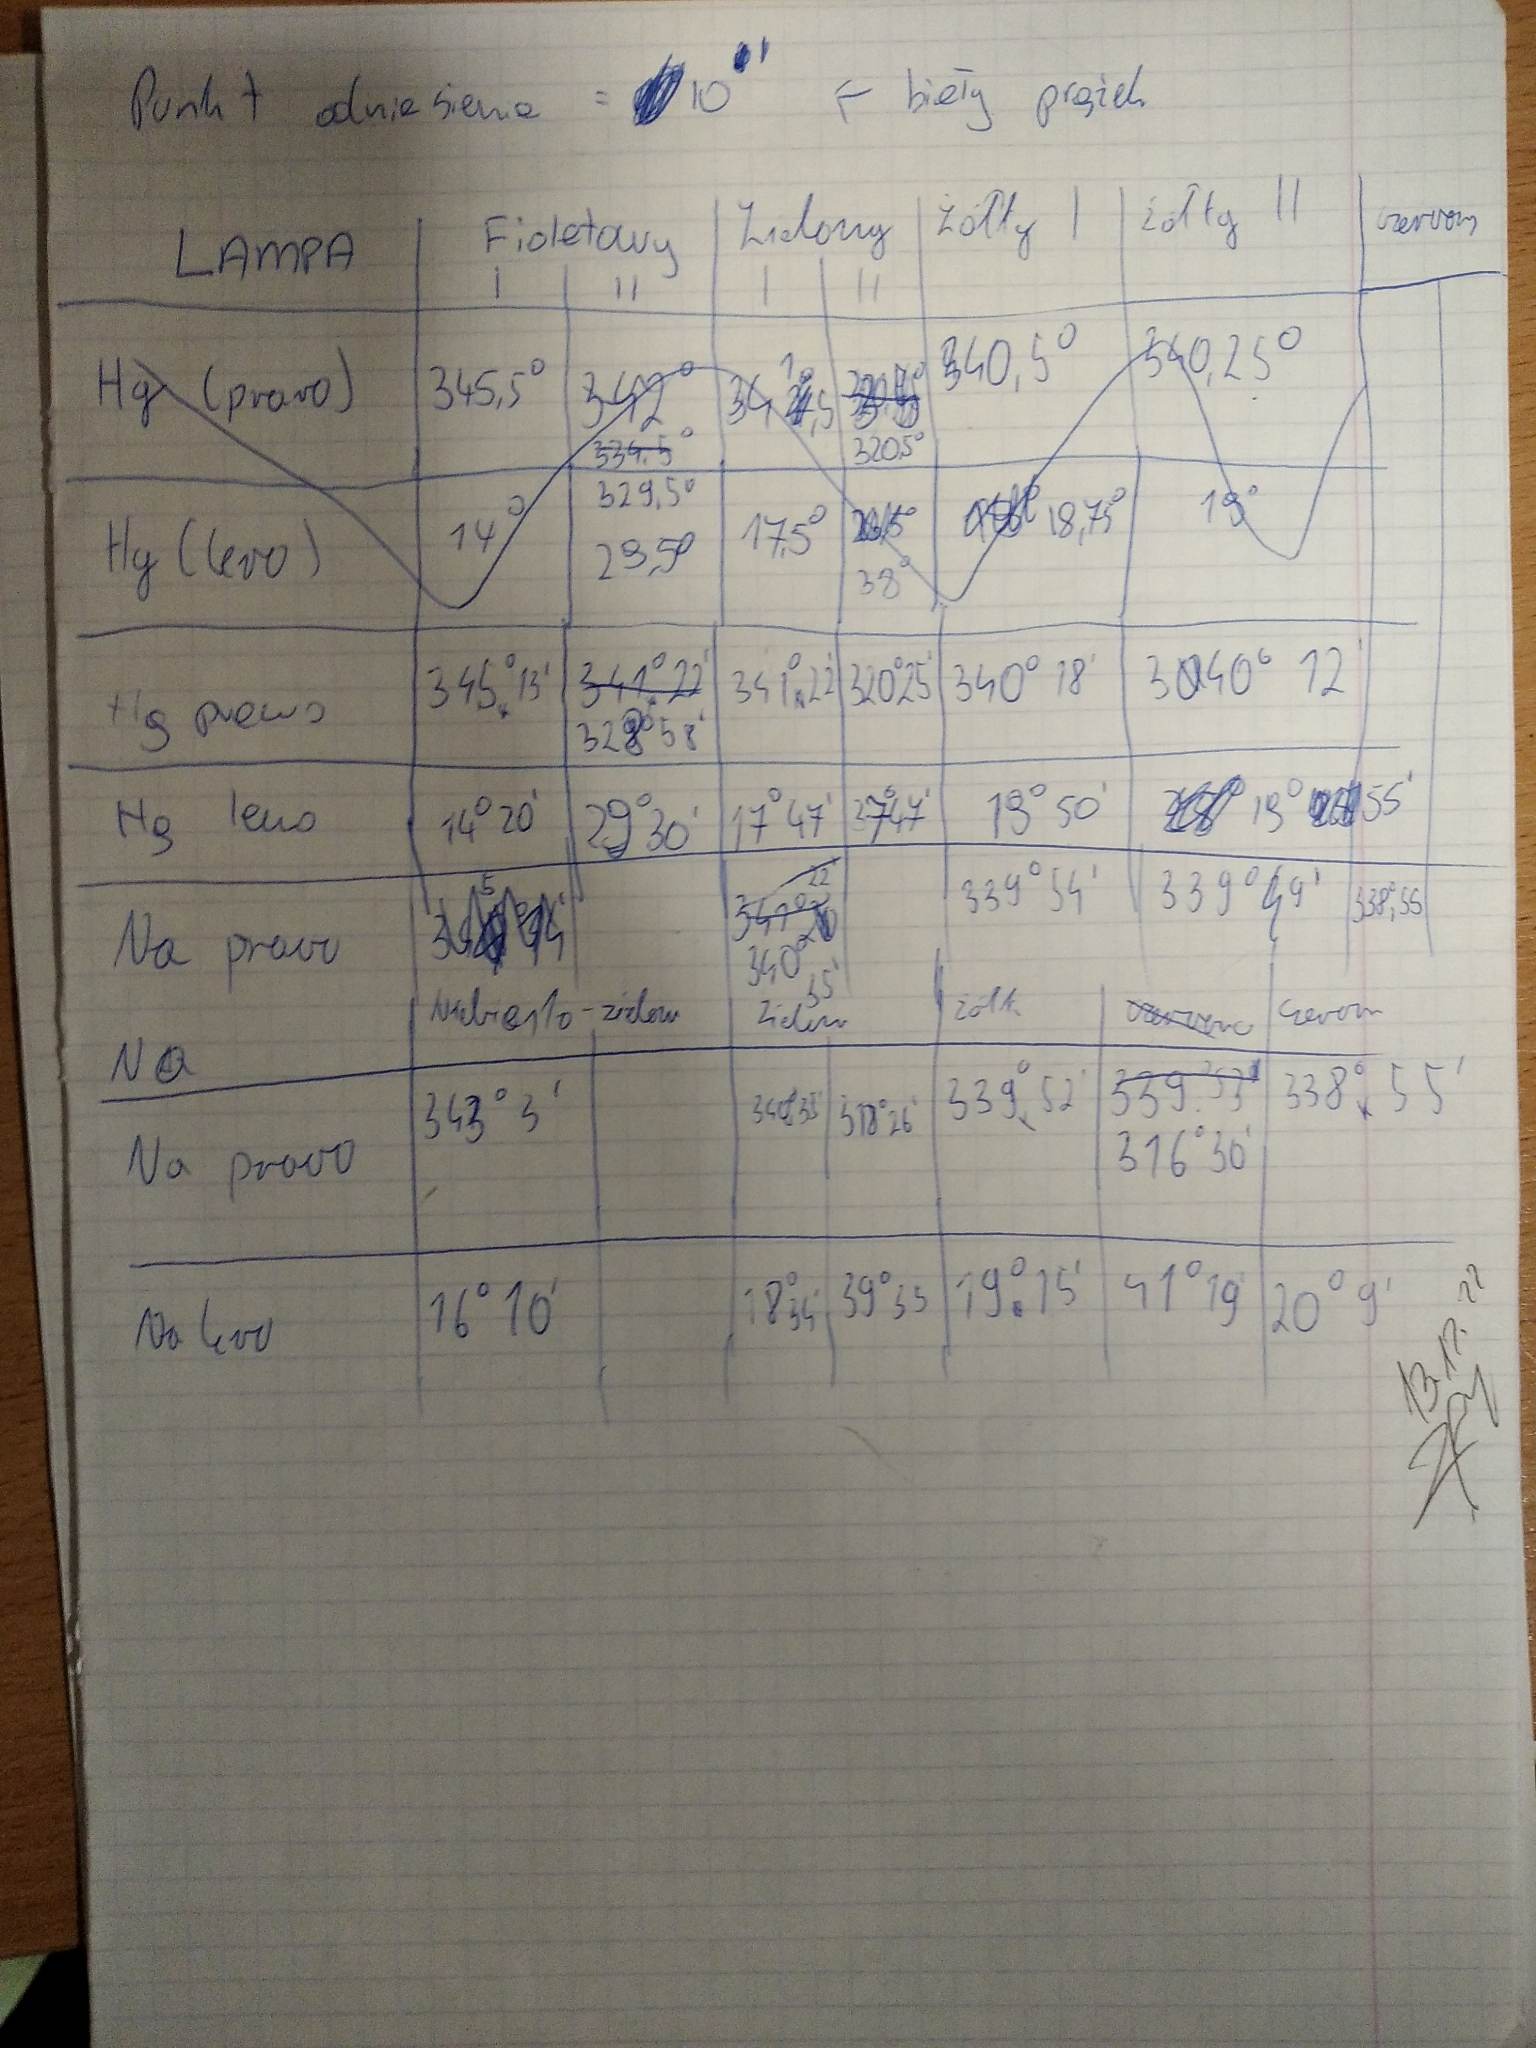 Punkt odniesienia = 10' ← biały prążek
LAMPA Fioletowy Zielony Żółty I Żółty II czerwony
I II I II
Hg (prawo) 345,5° 342° 341,5° 340,5° 340,25°
334.5° 320,5°
329,5°
Hg (lewo) 14° 29,5° 17,5° 38° 18,75° 19°
Hg prawo 345°13' 341°22' 341°22' 320°25' 340° 18' 340° 12'
328°58'
Hg lewo 14° 20' 29°30' 17°47' 37°47' 19° 50' 19° 55'
Na prawo 340° 35' 339° 54' 339° 49' 338°,55
Niebiesko-zielony Zielony żółty czerwony czerwony
Na
Na prawo 343° 3' 340°35' 318°26' 339° 52' 339°53' 338° 55'
316°30'
Na lewo 16° 10' 18°34' 39°35 19° 15' 41° 19' 20° 9'
13.12.22